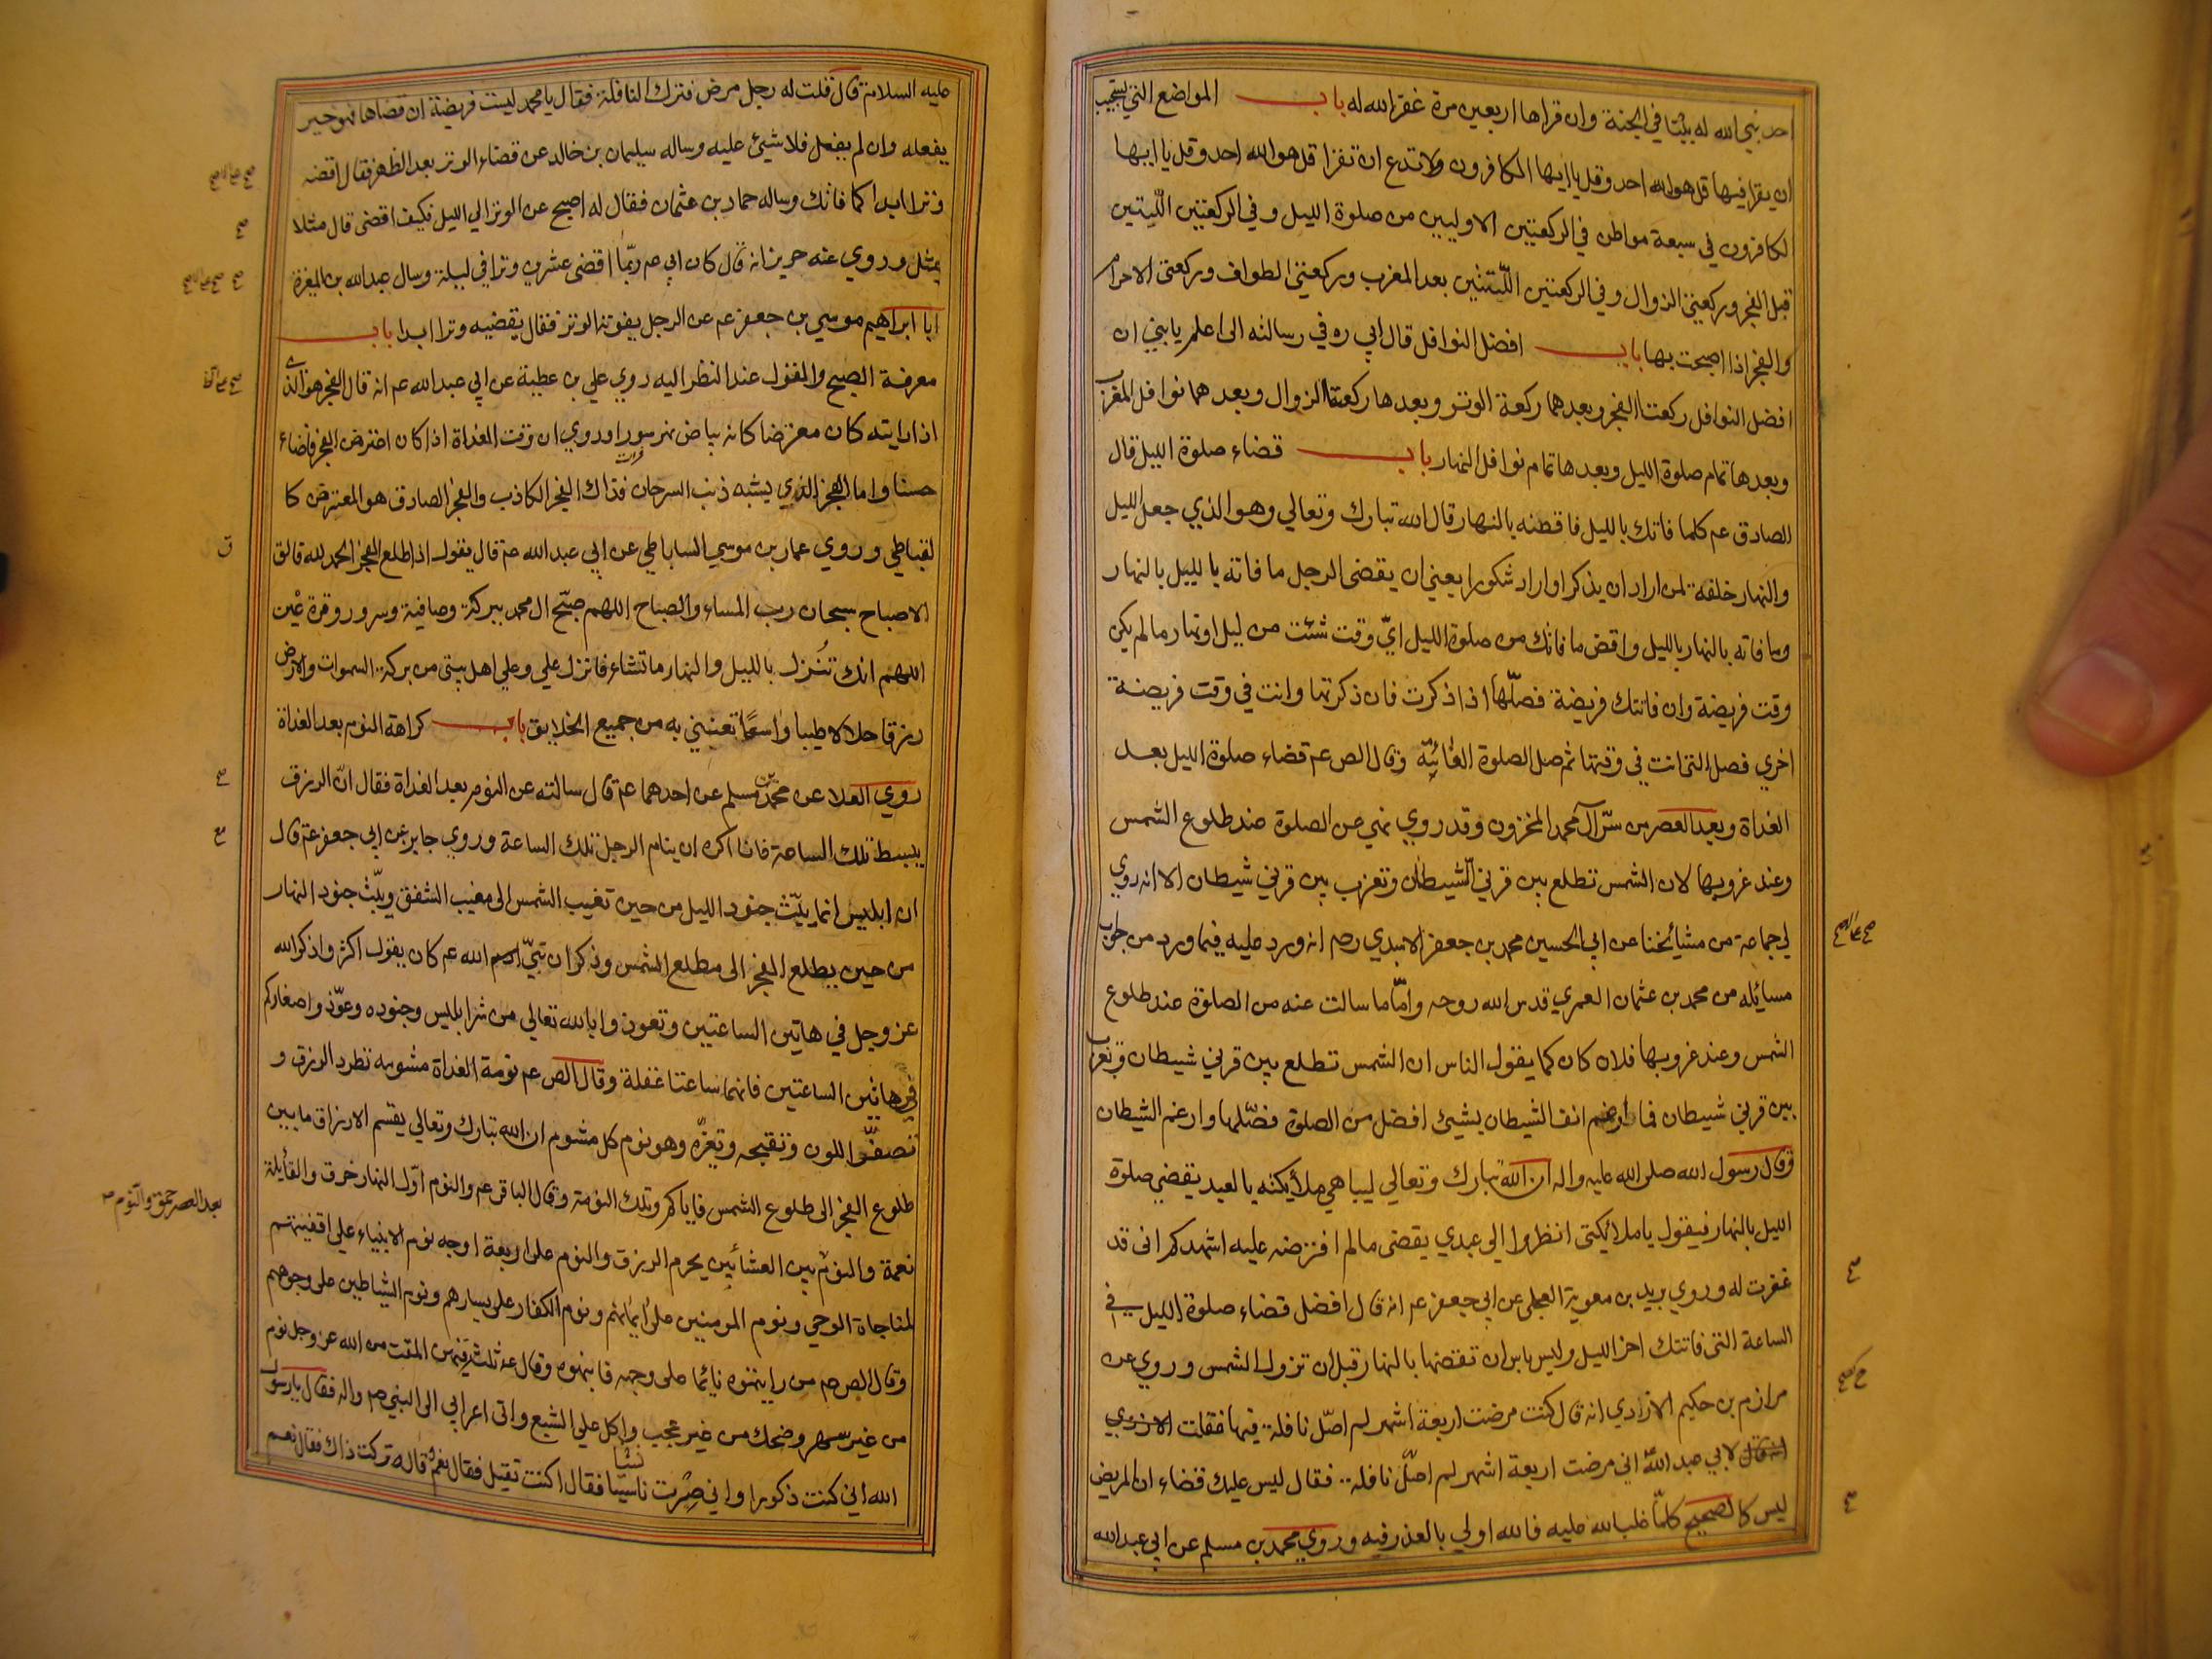 احد بني الله له بيتا في الجنة وان قراها اربعين مرة غفر الله له باب المواضع التي يستحب
ان يقرا فيها قل هو الله احد وقل يا ايها الكافرون ولا تدع ان تقرا قل هو الله احد وقل يا ايها
الكافرون في سبعة مواطن في الركعتين الاوليين من صلوة الليل وفي الركعتين اللتين
قبل الفجر وركعتي الزوال وفي الركعتين اللتين بعد المغرب وركعتي الطواف وركعتي الاحرام
والفجر اذا اصبحت بها باب افضل النوافل قال ابي ره في رسالته الى اعلم يا بني ان
افضل النوافل ركعتا الفجر وبعدهما ركعة الوتر وبعدها ركعتا الزوال وبعدهما نوافل المغرب
وبعدها تمام صلوة الليل وبعدها تمام نوافل النهار باب قضاء صلوة الليل قال
الصادق عم كلما فاتك بالليل فاقضه بالنهار قال الله تبارك وتعالي وهو الذي جعل الليل
والنهار خلفة لمن اراد ان يذكر او اراد شكورا يعني ان يقضي الرجل ما فاته بالليل بالنهار
وما فاته بالنهار بالليل واقض ما فاتك من صلوة الليل اي وقت شئت من ليل او نهار ما لم يكن
وقت فريضة وان فاتتك فريضة فصلها اذا ذكرت فان ذكرتها وانت في وقت فريضة
اخري فصل التي انت في وقتها ثم صل الصلوة الفائتة وقال الص عم قضاء صلوة الليل بعد
الغداة وبعد العصر من سر آل محمد المخزون وقد روي نهي عن الصلوة عند طلوع الشمس
وعند غروبها لان الشمس تطلع بين قرني الشيطان وتغرب بين قرني شيطان الا انه روي
لي جماعة من مشائخنا عن ابي الحسين محمد بن جعفر الاسدي رضم انه ورد عليه فيما ورد من جواب
مسائله من محمد بن عثمان العمري قدس الله روحه واما ما سالت عنه من الصلوة عند طلوع
الشمس وعند غروبها فلان كان كما يقول الناس ان الشمس تطلع بين قرني شيطان وتغرب
بين قرني شيطان فما ارغم انف الشيطان بشيئ افضل من الصلوة فصلها وارغم الشيطان
وقال رسول الله صلى الله عليه واله ان الله تبارك وتعالي ليباهي ملائكته بالعبد يقضي صلوة
الليل بالنهار فيقول يا ملائكتي انظروا الي عبدي يقضي ما لم افترضه عليه اشهدكم اني قد
غفرت له وروي بريد بن معوية العجلي عن ابي جعفر عم انه قال افضل قضاء صلوة الليل في
الساعة التي فاتتك اخر الليل وليس باس ان تقضها بالنهار قبل ان تزول الشمس وروي عن
مرازم بن حكيم الازدي انه قال كنت مرضت اربعة اشهر لم اصل نافلة فيها فقلت
لابي عبد الله اني مرضت اربعة اشهر لم اصل نافلة فقال ليس عليك قضاء ان المريض
ليس كالصحيح كلما غلب الله عليه فالله اولي بالعذر فيه وروي محمد بن مسلم عن ابي عبد الله
عليه السلام قال قلت له رجل مرض فترك النافلة فقال يا محمد ليست فريضة ان قضاها فهو خير
يفعله وان لم يفعل فلا شيئ عليه وساله سليمان بن خالد عن قضاء الوتر بعد الظهر فقال اقضه
وترا ابدا كما فاتك وساله حماد بن عثمان فقال له اصبح عن الوتر الي الليل فكيف اقضي قال مثلا
بمثل وروي عنه حريز انه قال كان ابي عم ربما اقضي عشرين وترا في ليلة وسال عبد الله بن المغيرة
ابا ابراهيم موسي بن جعفر عم عن الرجل يفوته الوتر فقال يقضيه وترا ابدا باب
معرفة الصبح والقول عند النظر اليه روي علي بن عطية عن ابي عبد الله عم انه قال الفجر هو الذي
اذا رايته كان معترضا كانه بياض نهر سورا وروي ان وقت الغداة اذا كان اعترض الفجر فاضاء
حسنا واما الفجر الذي يشبه ذنب السرحان فذاك الفجر الكاذب والفجر الصادق هو المعترض كا
لقباطي وروي عمار بن موسي الساباطي عن ابي عبد الله عم قال يقول اذا طلع الفجر الحمد لله فالق
الاصباح سبحان رب المساء والصباح اللهم صبح ال محمد ببركة وعافية وسرور وقرة عين
اللهم انك تنزل بالليل والنهار ما تشاء فانزل علي وعلي اهل بيتي من بركة السموات والارض
رزقا حلالا طيبا واسعا تغنيني به من جميع الخلايق باب كراهة النوم بعد الغداة
روي العلا عن محمد بن مسلم عن احدهما عم قال سالته عن النوم بعد الغداة فقال ان الرزق
يبسط تلك الساعة فانا اكره ان ينام الرجل تلك الساعة وروي جابر عن ابي جعفر عم قال
ان ابليس انما يبث جنود الليل من حين تغيب الشمس الى مغيب الشفق ويبث جنود النهار
من حين يطلع الفجر الى مطلع الشمس وذكر ان نبي الله عم كان يقول اكثروا ذكر الله
عز وجل في هاتين الساعتين وتعوذوا بالله تعالي من شر ابليس وجنوده وعوذوا صغاركم
في هاتين الساعتين فانهما ساعتا غفلة وقال الص عم نومة الغداة مشومة تطرد الرزق و
تصفر اللون وتقبحه وتغيره وهو نوم كل مشوم ان الله تبارك وتعالي يقسم الارزاق ما بين
طلوع الفجر الى طلوع الشمس فاياكم وتلك النومة وقال الباقر عم والنوم اول النهار خرق والقايلة
نعمة والنوم بين العشائين يحرم الرزق والنوم على اربعة اوجه نوم الانبياء علي اقفيتهم
لمناجاة الوحي ونوم المومنين على ايمانهم ونوم الكفار على يسارهم ونوم الشياطين على وجوههم
وقال الص عم من رايتموه نائما على وجهه فانبهوه وقال عم ثلث فيهن المقت من الله عز وجل نوم
من غير سهر وضحك من غير عجب واكل علي الشبع واتى اعرابي الى النبي صم واله فقال يا رسول
الله اني كنت ذكورا واني صرت نسيا فقال اكنت تقيل فقال نعم قال وتركت ذاك فقال نعم
بعد العصر حمق والنوم